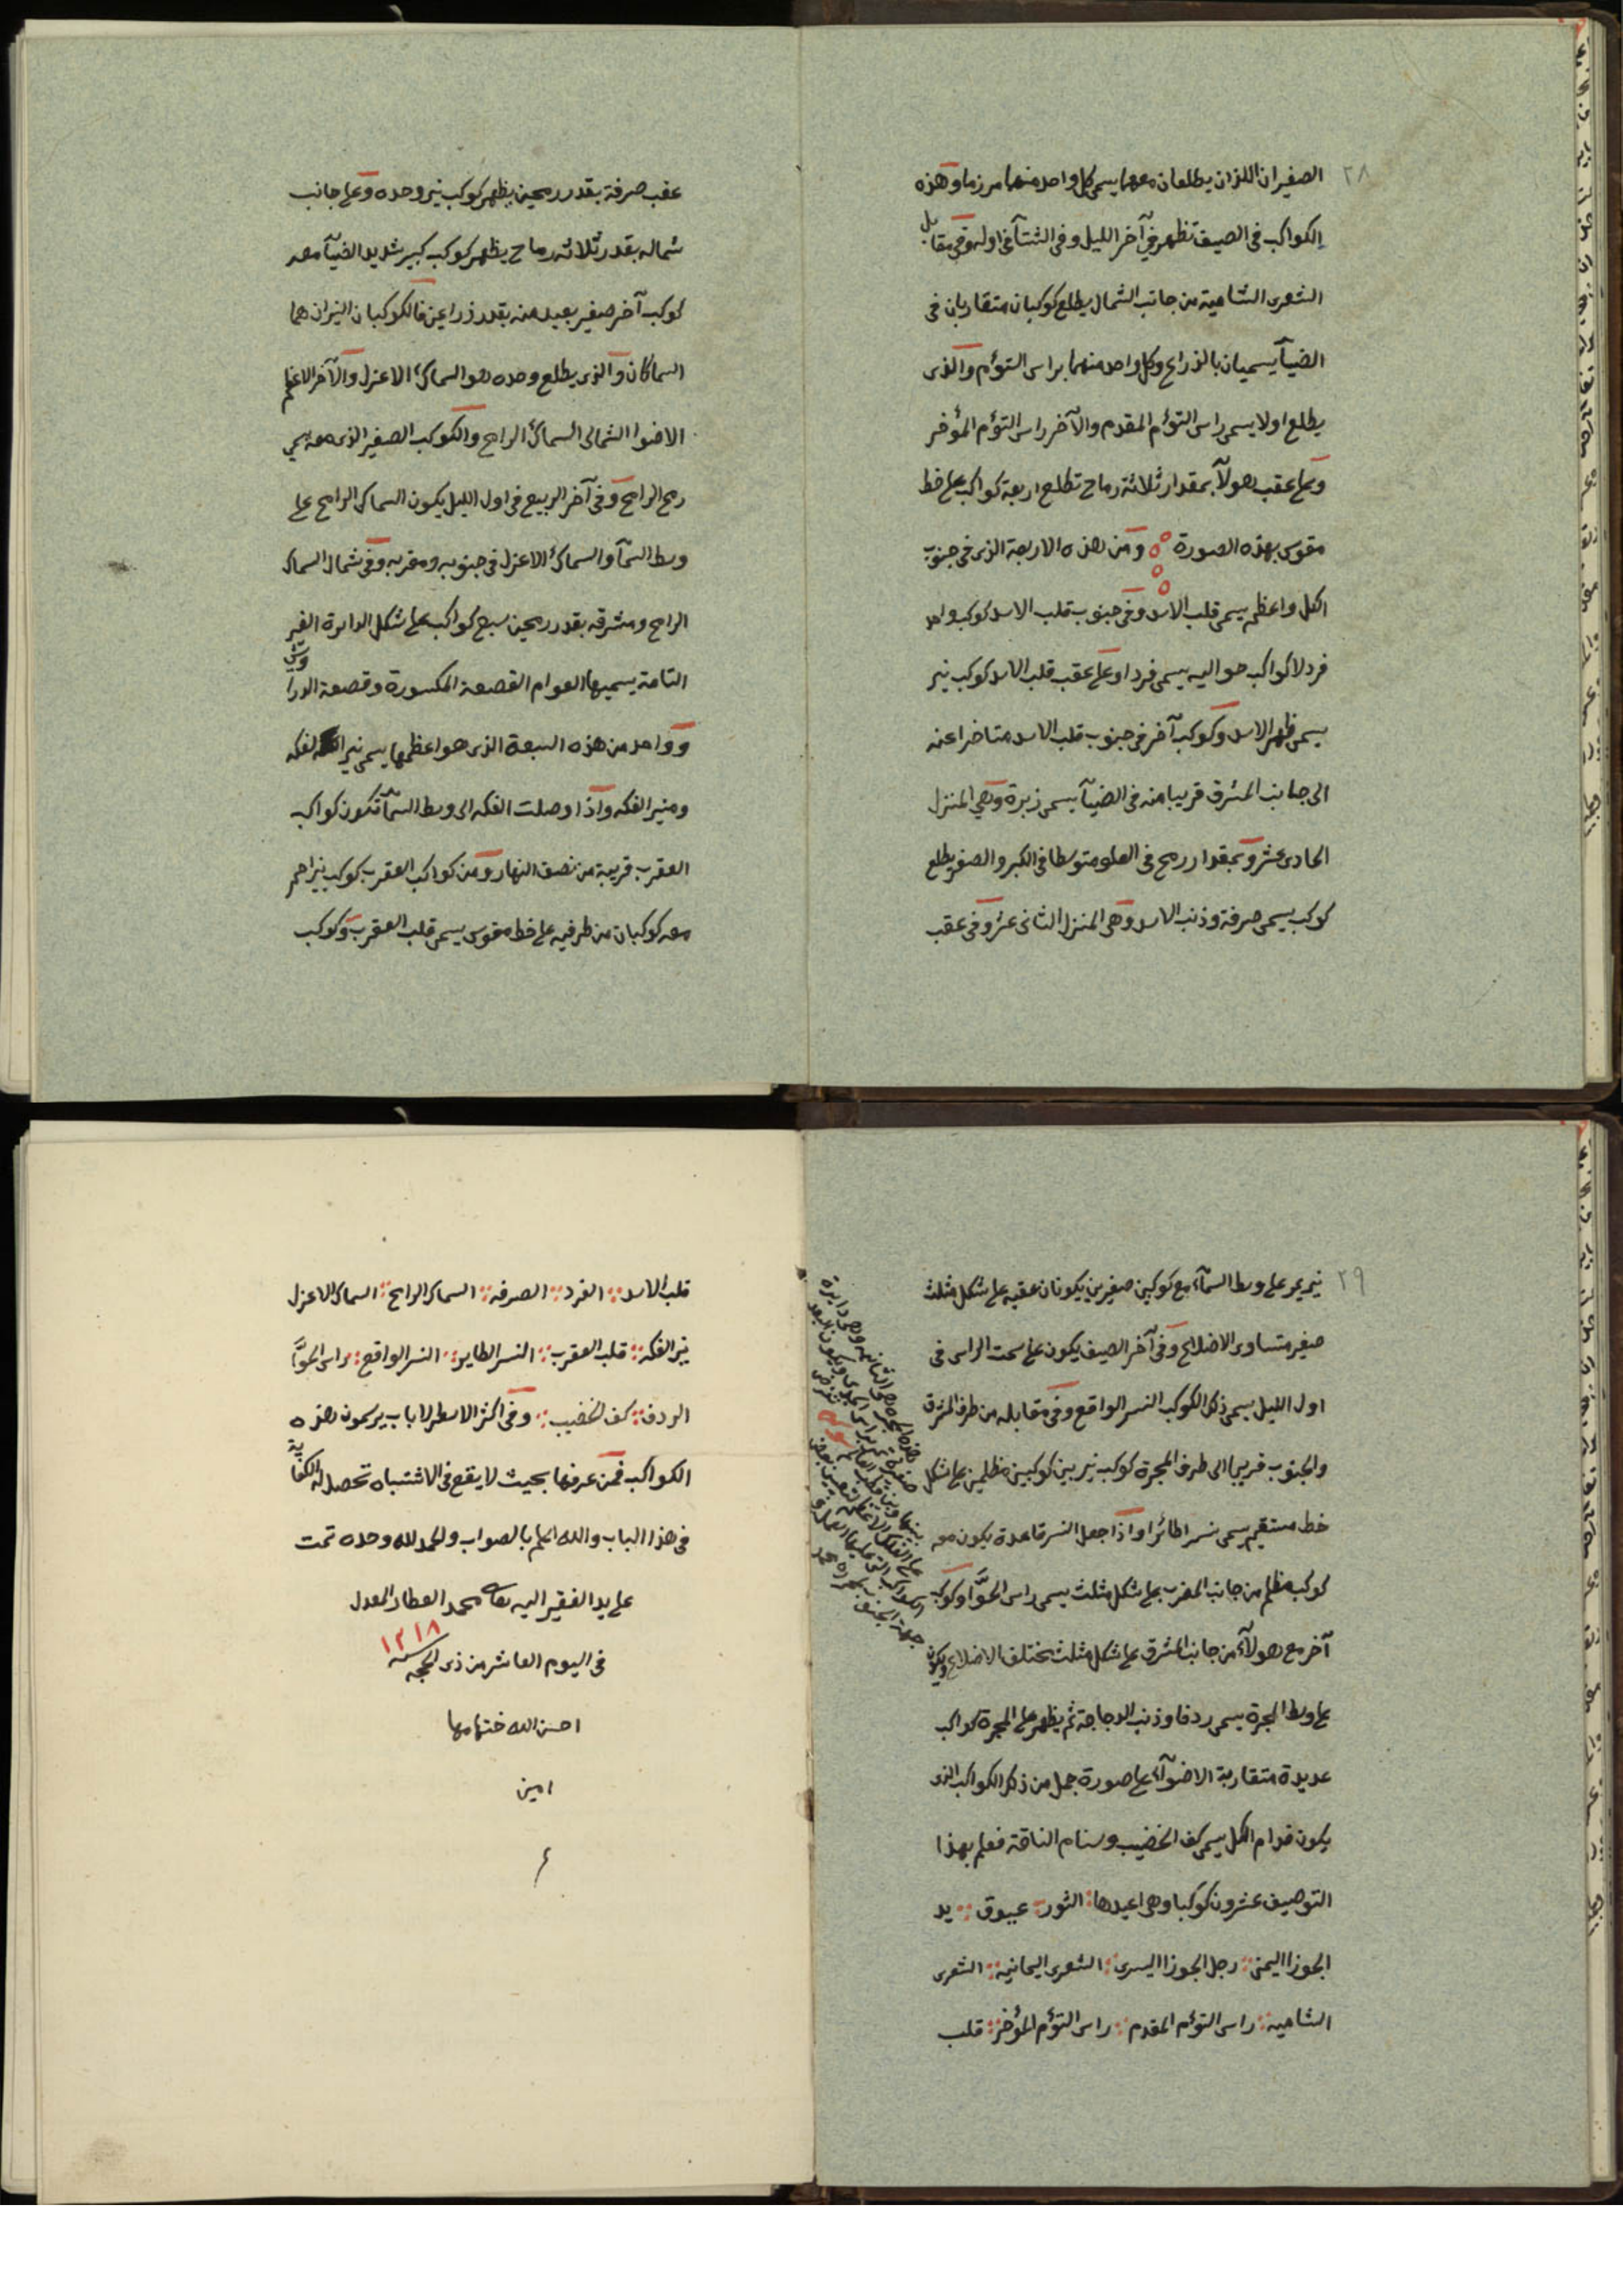 ٢٨
الصغيران اللذان يطلعان معهما يسمى كل واحد منهما مرزما وهذه
الكواكب في الصيف تظهر في آخر الليل وفي الشتآ في اوله وفي مقابل
الشعرى الشامية من جانب الشمال يطلع كوكبان متقاربان في
الضيآ يسميان بالذراع وكل واحد منهما براس التوأم والذى
يطلع اولا يسمى راس التوأم المقدم والآخر راس التوأم المؤخر
وعلى عقب هولآ بمقدار ثلاثة رماح تطلع اربعة كواكب على خط
مقوس بهذه الصورة ومن هذه الاربعة الذى في جنوب
الكل واعظم يسمى قلب الاسد وفي جنوب قلب الاسد كوكب واحد
فرد لا كواكب حواليه يسمى فردا وعلى عقب قلب الاسد كوكب نير
يسمى ظهر الاسد وكوكب آخر في جنوب قلب الاسد متاخرا عنه
الى جانب المشرق قريبا منه في الضيآ يسمى زبرة وهي المنزل
الحادى عشر وبمقدار رمح في العلو متوسطا في الكبر والصغر يطلع
كوكب يسمى صرفة وذنب الاسد وهي المنزل الثانى عشر وفي عقب
عقب صرفة بقدر رمحين يظهر كوكب نير وحده وعلى جانب
شماله بقدر ثلاثة رماح يظهر كوكب كبير شديد الضيآ معه
كوكب آخر صغير بعيد منه بقدر ذراعين فالكوكبان النيران هما
السماكان والذى يطلع وحده هو السماك الاعزل والآخر الاعظم
الاضوا الشمالى السماك الرامح والكوكب الصغير الذى معه يسمى
رمح الرامح وفي آخر الربيع في اول الليل يكون السماك الرامح على
وسط السمآ والسماك الاعزل في جنوبه ومغربه وفي شمال السماك
الرامح ومشرقه بقدر رمحين سبع كواكب على شكل الدايرة الغير
التامة يسميها العوام القصعة المكسورة وقصعة الدراويش
وواحد من هذه السبعة الذى هو اعظمها يسمى نير الفكه
ومنير الفكه واذا وصلت الفكه الى وسط السمآ تكون كواكب
العقرب قريبة من نصف النهار ومن كواكب العقرب كوكب نير احمر
معه كوكبان من طرفيه على خط مقوس يسمى قلب العقرب وكوكب
٢٩
نير يمر على وسط السمآء مع كوكبين صغيرين يكونان عقبه على شكل مثلث
صغير متساوى الاضلاع وفي آخر الصيف يكون على سمت الراس في
اول الليل يسمى ذلك الكوكب النسر الواقع وفي مقابله من طرف المشرق
والجنوب قريبا الى طرف المجرة كوكب نير بين كوكبين مظلمين على شكل
خط مستقيم يسمى نسرا طائرا واذا جعل النسر قاعدة يكون معه
كوكب مظلم من جانب المغرب على شكل مثلث يسمى راس الحوَّا وكوكب
آخر مع هولآء من جانب المشرق على شكل مثلث مختلف الاضلاع ويكون
على وسط المجرة يسمى ردفا وذنب الدجاجة ثم يظهر على المجرة كواكب
عديدة متقاربة الاضوآء على صورة جمل من ذلك الكواكب الذى
يكون قدام الكل يسمى كف الخضيب وسنام الناقة فعلم بهذا
التوصيف عشرون كوكبا وهي اعيدها الثور عيوق يد
الجوزا اليمنى رجل الجوزا اليسرى الشعرى اليمانيه الشعرى
الشاميه راس التوئم المقدم راس التوئم المؤخر قلب
قلب الاسد الفرد الصرفه السماك الرامح السماك الاعزل
نير الفكه قلب العقرب النسر الطاير النسر الواقع راس الحوَّا
الردف كف الخضيب وفي اكثر الاسطرلاباب يرسمون هذه
الكواكب فمن عرفها بحيث لا يقع في الاشتباه تحصل له الكفاية
في هذا الباب والله اعلم بالصواب والحمد لله وحده تمت
على يد الفقير اليه تعالى محمد العطار المعدل
في اليوم العاشر من ذى الحجه سنه ١٢١٨
احسن الله ختامها
امين